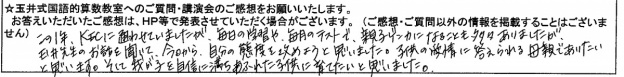 ☆玉井式国語的算数教室へのご質問・講演会のご感想をお願いいたします。
お答えいただいたご感想は、HP等で発表させていただく場合がございます。（ご感想・ご質問以外の情報を掲載することはございません）
この1年、KECに通わせていましたが、毎日の学習や、毎月のテストで、親子ゲンカになることも多々ありましたが、
玉井先生のお話を聞いて、今日から、自分の態度を改めようと思いました。子供の感情に答えられる母親でありたい
と思います。そして我が子を自信に満ちあふれた子供に育てたいと思いました。